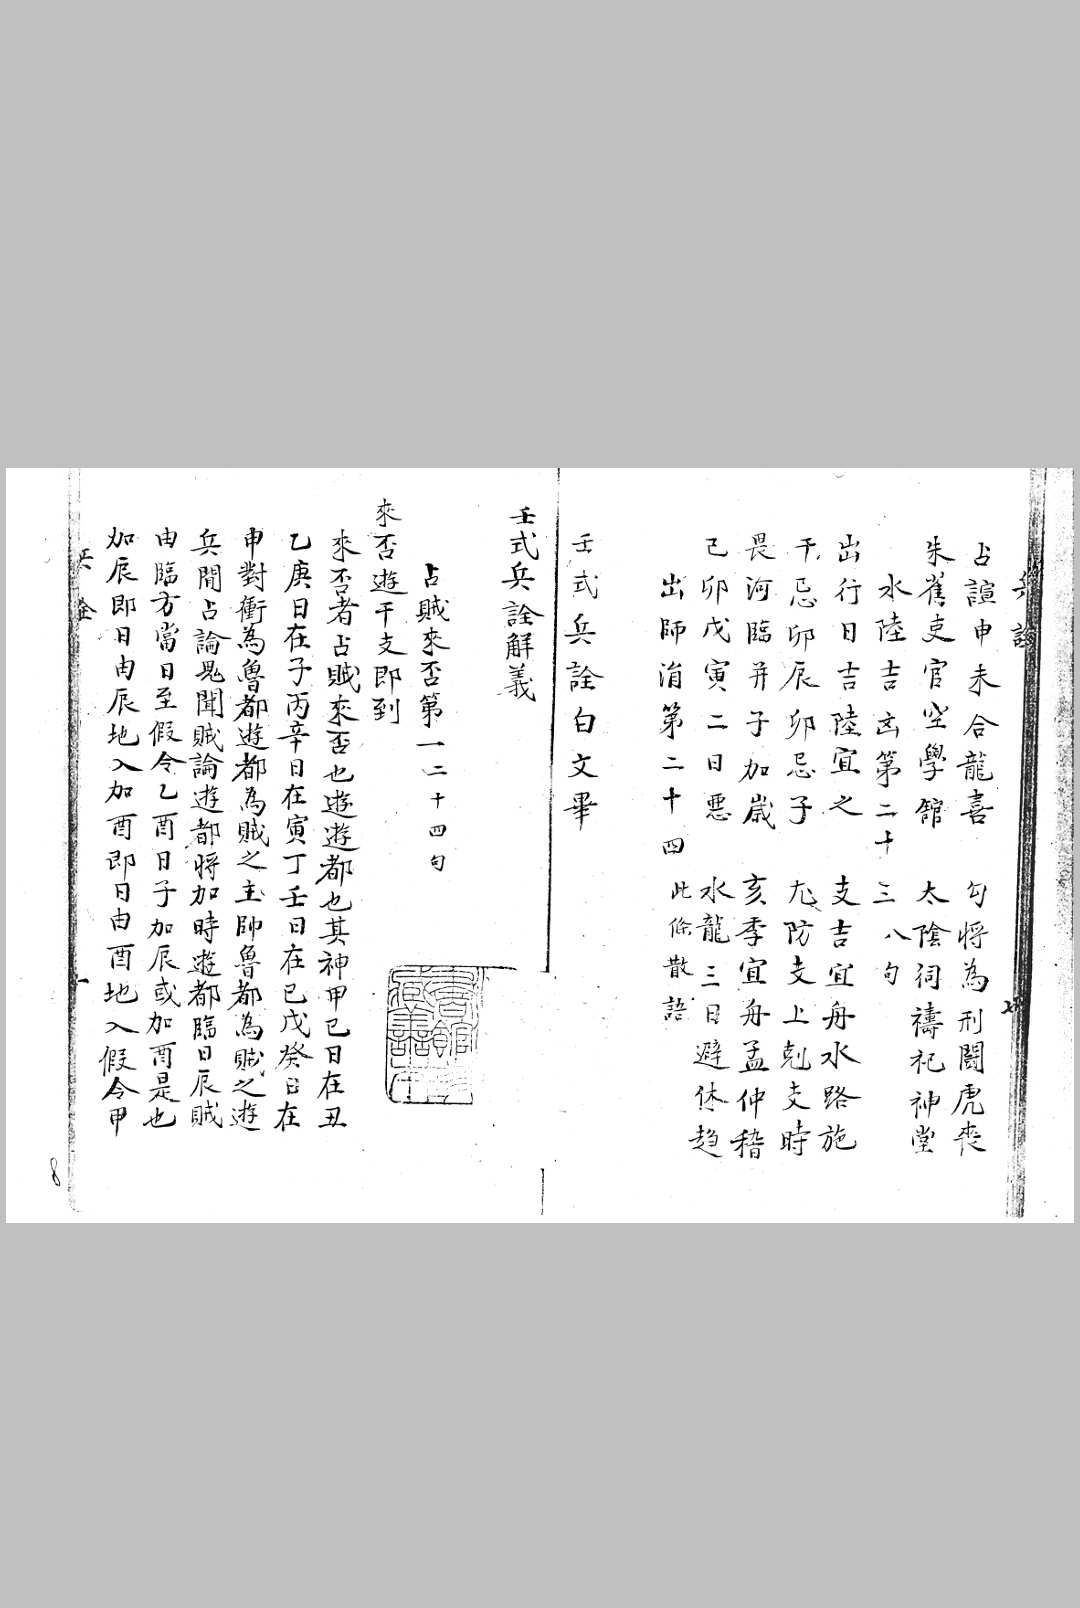 占諠申未合龍喜　勾將為刑鬪虎喪
朱雀吏官空學館　太陰祠禱祀神堂
水陸吉凶第二十三　八句
出行日吉陸宜之　支吉宜舟水路施
干忌卯辰卯忌子　尤防支上剋支時
畏河臨井子加歲　亥季宜舟孟仲稽
己卯戊寅二日惡　水龍三日避休趋
出師涓第二十四　此條散語
壬式兵詮白文畢
壬式兵詮解義
占賊來否第一二十四句
來否遊干支即到
來否者占賊來否也遊遊都也其神甲己日在丑
乙庚日在子丙辛日在寅丁壬日在巳戊癸日在
申對衝為魯都遊都為賊之主帥魯都為賊之遊
兵間占論鬼聞賊論遊都將加時遊都臨日辰賊
由臨方當日至假令乙酉日子加辰或加酉是也
加辰即日由辰地入加酉即日由酉地入假令甲
兵詮
七
一
8